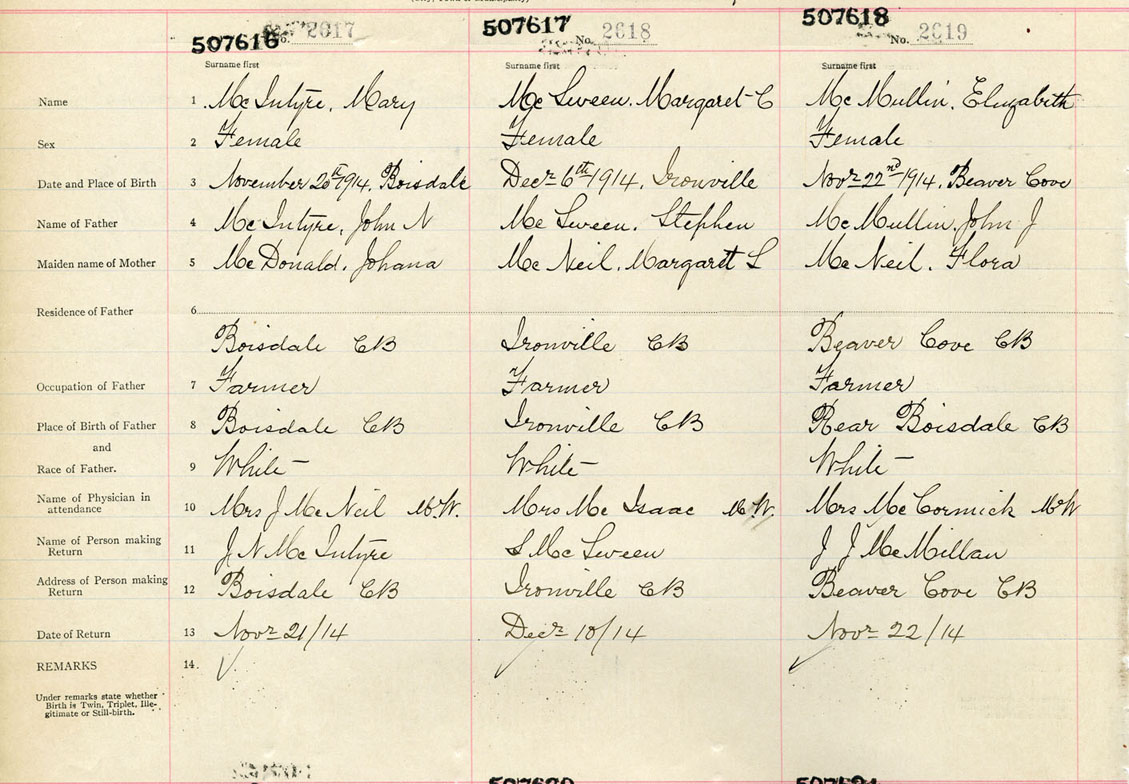 507616 No. 2017 507617 No. 2618 507618 No. 2619
Surname first Surname first Surname first
Name 1. Mc Intyre, Mary Mc Sween, Margaret C Mc Mullin, Elizabeth
Sex 2 Female Female Female
Date and Place of Birth 3 November 20th 1914, Boisdale Decr 6th 1914, Ironville Novr 22nd 1914, Beaver Cove
Name of Father 4 Mc Intyre, John N Mc Sween, Stephen Mc Mullin, John J
Maiden name of Mother 5 Mc Donald, Johana Mc Neil, Margaret S Mc Neil, Flora
Residence of Father 6
Boisdale CB Ironville CB Beaver Cove CB
Occupation of Father 7 Farmer Farmer Farmer
Place of Birth of Father 8 Boisdale CB Ironville CB Rear Boisdale CB
and
Race of Father. 9 White White White
Name of Physician in
attendance 10 Mrs J Mc Neil M.W. Mrs Mc Isaac M.W. Mrs Mc Cormick MW
Name of Person making
Return 11 J N Mc Intyre S Mc Sween J J Mc Millan
Address of Person making
Return 12 Boisdale CB Ironville CB Beaver Cove CB
Date of Return 13 Novr 21/14 Decr 10/14 Novr 22/14
REMARKS 14.
Under remarks state whether
Birth is Twin, Triplet, Ille-
gitimate or Still-birth.